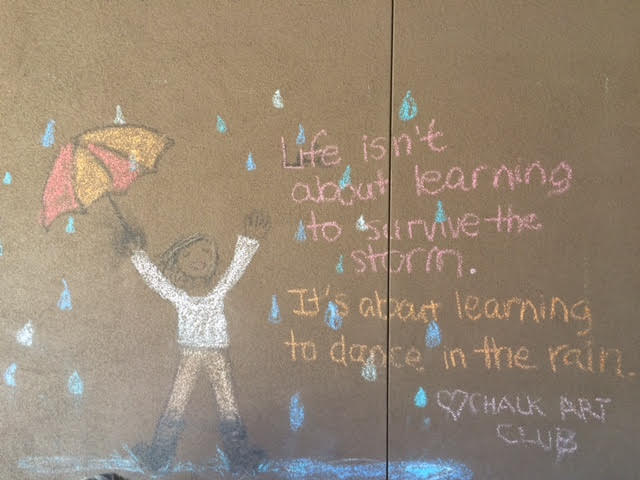 Life isn't
about learning
to survive the
storm.
It's about learning
to dance in the rain.
♡CHALK ART
CLUB